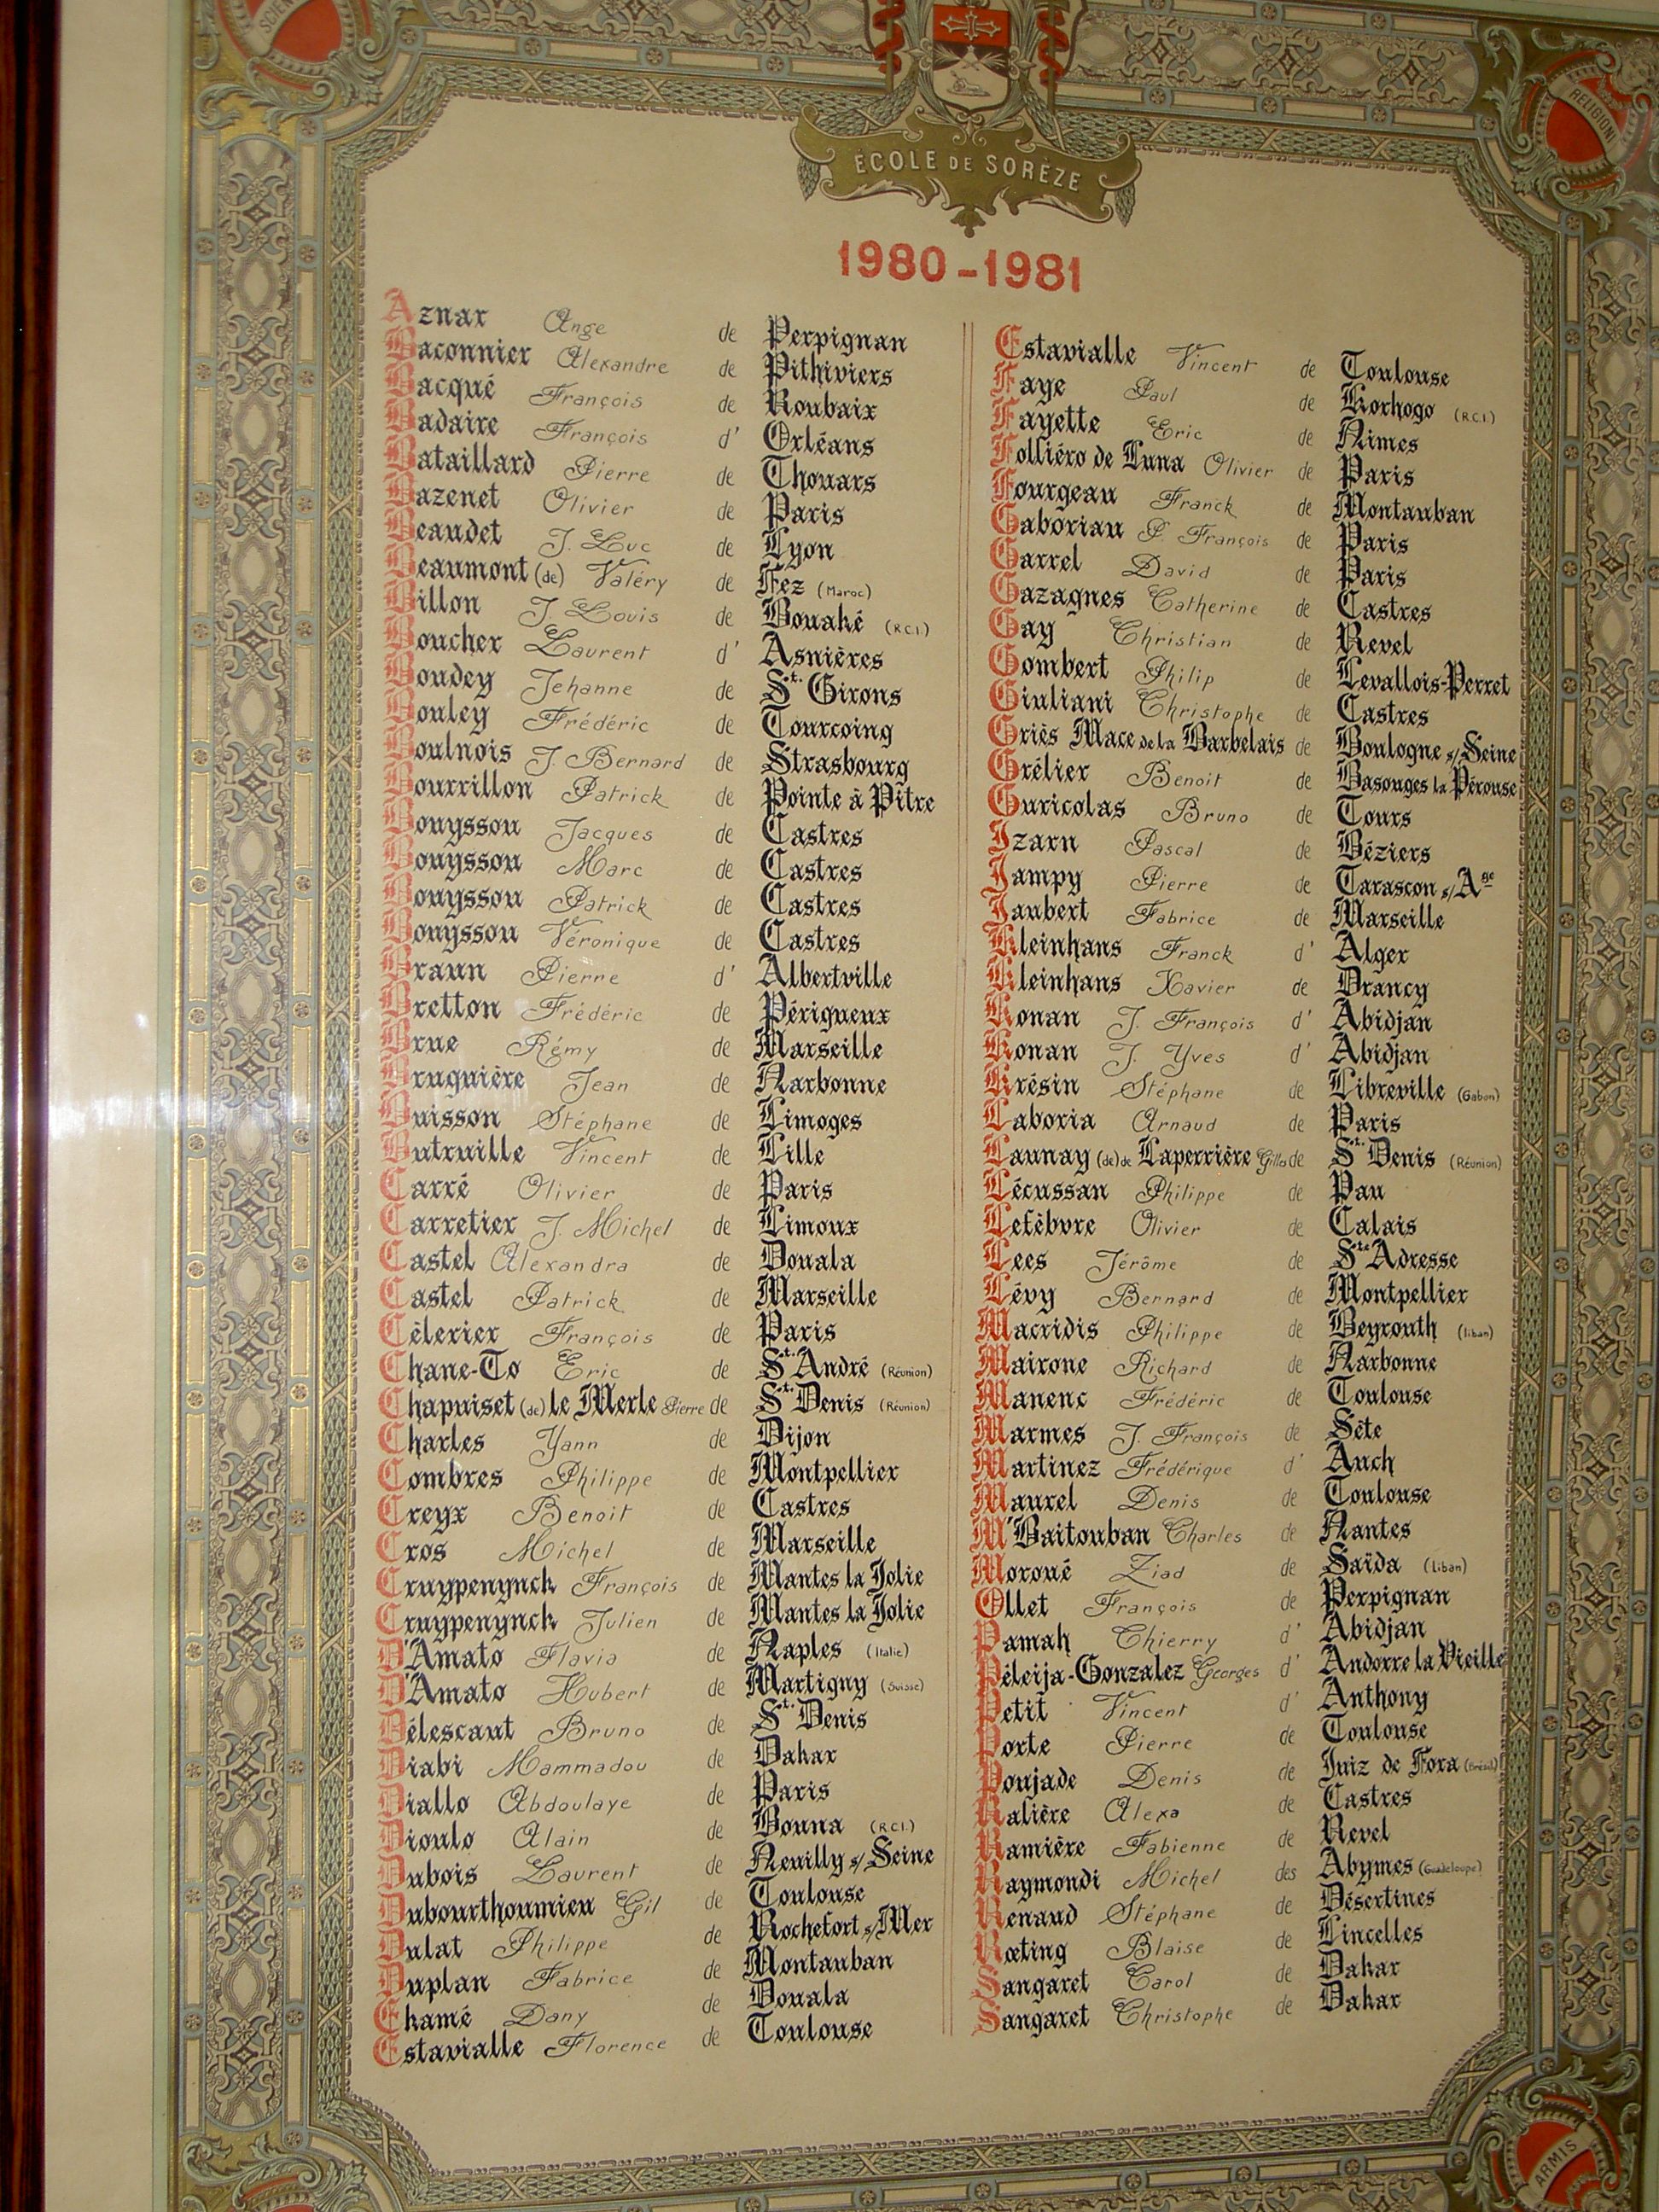 RELIGIONI
ÉCOLE DE SORÈZE
1980-1981
Aznar Ange de Perpignan
Baconnier Alexandre de Pithiviers
Bacqué François de Roubaix
Badaire François d' Orléans
Bataillard Pierre de Thouars
Bazenet Olivier de Paris
Beaudet J. Luc de Lyon
Beaumont (de) Valéry de Fez (Maroc)
Billon J. Louis de Bouaké (R.C.I.)
Boucher Laurent d' Asnières
Boudey Jehanne de St. Girons
Bouley Frédéric de Tourcoing
Boulnois J. Bernard de Strasbourg
Bourrillon Patrick de Pointe à Pitre
Bouyssou Jacques de Castres
Bouyssou Marc de Castres
Bouyssou Patrick de Castres
Bouyssou Véronique de Castres
Braun Pierre d' Albertville
Bretton Frédéric de Périgueux
Brue Rémy de Marseille
Bruguière Jean de Narbonne
Buisson Stéphane de Limoges
Butruille Vincent de Lille
Carré Olivier de Paris
Carretier J. Michel de Limoux
Castel Alexandra de Douala
Castel Patrick de Marseille
Célerier François de Paris
Chane-To Eric de St. André (Réunion)
Chapuiset (de) le Merle Pierre de St. Denis (Réunion)
Charles Yann de Dijon
Combres Philippe de Montpellier
Creyx Benoit de Castres
Cros Michel de Marseille
Cruypenynck François de Mantes la Jolie
Cruypenynck Julien de Mantes la Jolie
D'Amato Flavia de Naples (Italie)
D'Amato Hubert de Martigny (Suisse)
Délescaut Bruno de St. Denis
Diabi Mammadou de Dakar
Diallo Abdoulaye de Paris
Dioulo Alain de Bouna (R.C.I.)
Dubois Laurent de Neuilly s/ Seine
Dubourthoumieu Gil de Toulouse
Dulat Philippe de Rochefort s/ Mer
Duplan Fabrice de Montauban
Ekamé Dany de Douala
Estavialle Florence de Toulouse
Estavialle Vincent de Toulouse
Faye Paul de Korhogo (R.C.I)
Fayette Eric de Nimes
Folliéro de Luna Olivier de Paris
Fourgeau Franck de Montauban
Gaboriau P. François de Paris
Garrel David de Paris
Gazagnes Catherine de Castres
Gay Christian de Revel
Gombert Philip de Levallois-Perret
Giuliani Christophe de Castres
Griès Mace de la Barbelais de Boulogne s/ Seine
Grélier Benoit de Basouges la Pérouse
Guricolas Bruno de Tours
Izarn Pascal de Béziers
Jampy Pierre de Tarascon s/ Age
Jaubert Fabrice de Marseille
Kleinhans Franck d' Alger
Kleinhans Xavier de Drancy
Konan J. François d' Abidjan
Konan J. Yves d' Abidjan
Krésin Stéphane de Libreville (Gabon)
Laboria Arnaud de Paris
Launay (de) de Laperrière Gilles de St. Denis (Réunion)
Lécussan Philippe de Pau
Lefèbvre Olivier de Calais
Lees Jérôme de Ste Adresse
Lévy Bernard de Montpellier
Macridis Philippe de Beyrouth (liban)
Mairone Richard de Narbonne
Manenc Frédéric de Toulouse
Marmes J. François de Sète
Martinez Frédérique d' Auch
Maurel Denis de Toulouse
M'Baitouban Charles de Nantes
Moroué Ziad de Saïda (liban)
Ollet François de Perpignan
Pamah Thierry d' Abidjan
Péleija-Gonzalez Georges d' Andorre la Vieille
Petit Vincent d' Anthony
Porte Pierre de Toulouse
Poujade Denis de Juiz de Fora (Brésil)
Ralière Alexa de Castres
Ramière Fabienne de Revel
Raymondi Michel des Abymes (Guadeloupe)
Renaud Stéphane de Désertines
Rœting Blaise de Lincelles
Sangaret Carol de Dakar
Sangaret Christophe de Dakar
ARMIS